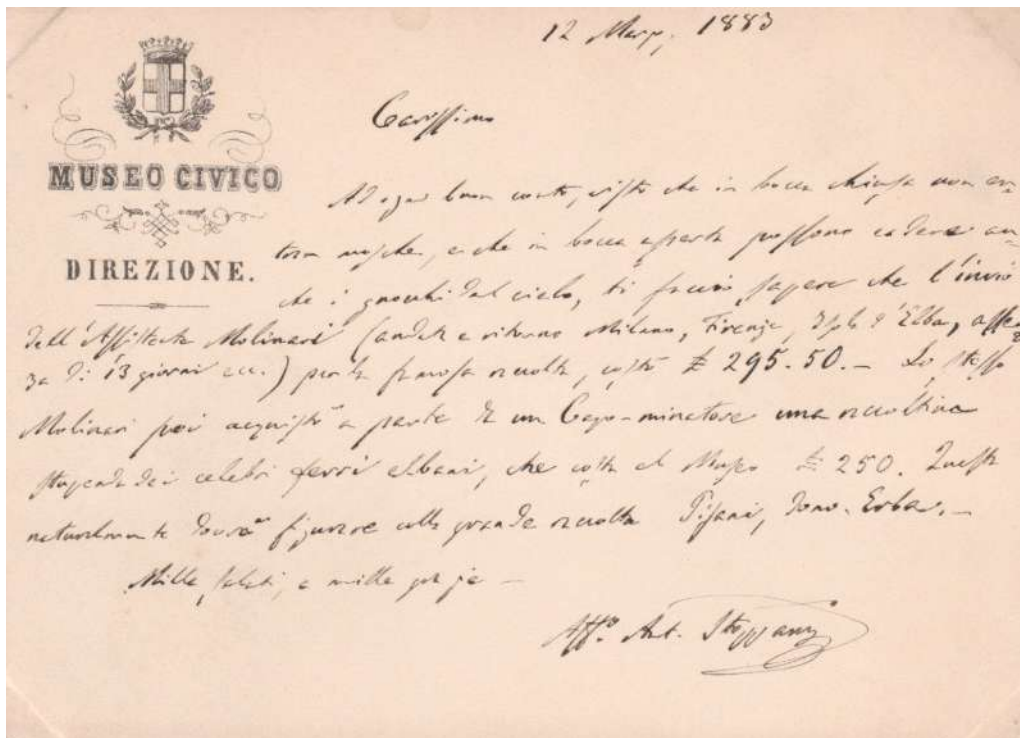 12 Marzo, 1883
MUSEO CIVICO
DIREZIONE.
Carissimo
Ad ogni buon conto, visto che in bocca chiusa non en-
tran mosche, e che in bocca aperta possono cadere an-
che i gnocchi dal cielo, ti faccio sapere che l'invio
dell'Assistente Molinari (andata e ritorno Milano, Firenze, Isola d'Elba, assen-
za di 13 giorni ecc.) per la famosa raccolta, costò £ 295.50. — Lo stesso
Molinari poi acquistò a parte da un Capo-minatore una raccoltina
stupenda dei celebri ferri elbani, che costa al Museo £ 250. Questa
naturalmente dovrà figurare colla grande raccolta Pisani, dono Erba. —
Mille saluti, e mille grazie —
Aff.º Ant. Stoppani